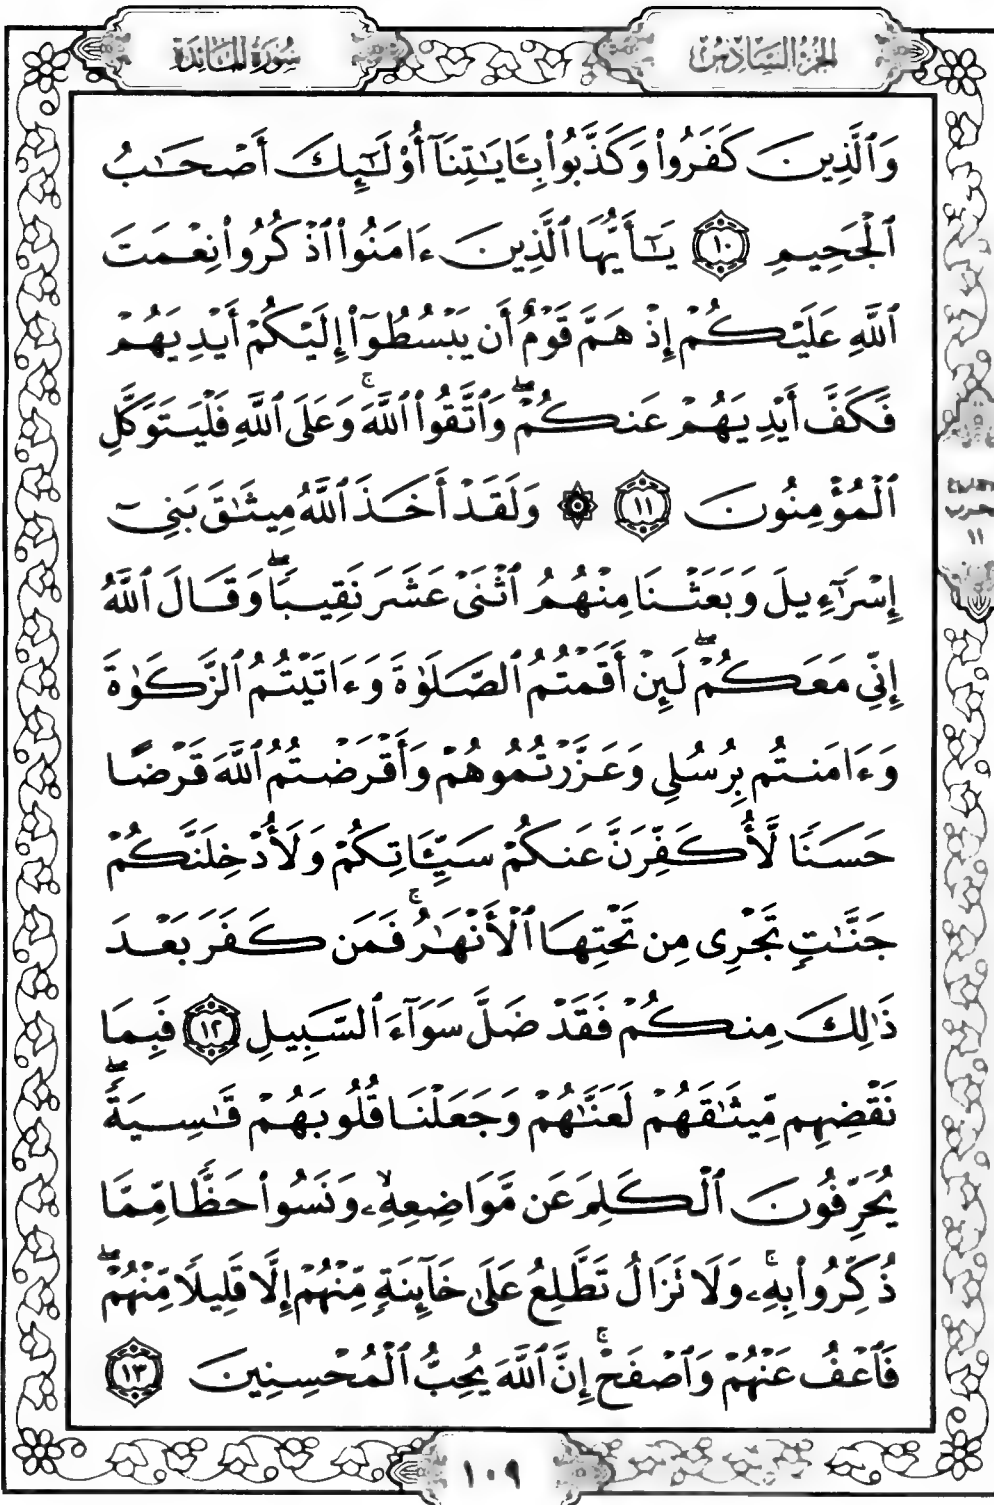 الجزء السادس
سورة المائدة
وَٱلَّذِينَ كَفَرُوا۟ وَكَذَّبُوا۟ بِـَٔايَٰتِنَآ أُو۟لَٰٓئِكَ أَصْحَٰبُ
ٱلْجَحِيمِ ١٠ يَٰٓأَيُّهَا ٱلَّذِينَ ءَامَنُوا۟ ٱذْكُرُوا۟ نِعْمَتَ
ٱللَّهِ عَلَيْكُمْ إِذْ هَمَّ قَوْمٌ أَن يَبْسُطُوٓا۟ إِلَيْكُمْ أَيْدِيَهُمْ
فَكَفَّ أَيْدِيَهُمْ عَنكُمْ ۖ وَٱتَّقُوا۟ ٱللَّهَ ۚ وَعَلَى ٱللَّهِ فَلْيَتَوَكَّلِ
ٱلْمُؤْمِنُونَ ١١ ۞ وَلَقَدْ أَخَذَ ٱللَّهُ مِيثَٰقَ بَنِىٓ
إِسْرَٰٓءِيلَ وَبَعَثْنَا مِنْهُمُ ٱثْنَىْ عَشَرَ نَقِيبًا ۖ وَقَالَ ٱللَّهُ
إِنِّى مَعَكُمْ ۖ لَئِنْ أَقَمْتُمُ ٱلصَّلَوٰةَ وَءَاتَيْتُمُ ٱلزَّكَوٰةَ
وَءَامَنتُم بِرُسُلِى وَعَزَّرْتُمُوهُمْ وَأَقْرَضْتُمُ ٱللَّهَ قَرْضًا
حَسَنًا لَّأُكَفِّرَنَّ عَنكُمْ سَيِّـَٔاتِكُمْ وَلَأُدْخِلَنَّكُمْ
جَنَّٰتٍ تَجْرِى مِن تَحْتِهَا ٱلْأَنْهَٰرُ ۚ فَمَن كَفَرَ بَعْدَ
ذَٰلِكَ مِنكُمْ فَقَدْ ضَلَّ سَوَآءَ ٱلسَّبِيلِ ١٢ فَبِمَا
نَقْضِهِم مِّيثَٰقَهُمْ لَعَنَّٰهُمْ وَجَعَلْنَا قُلُوبَهُمْ قَٰسِيَةً ۖ
يُحَرِّفُونَ ٱلْكَلِمَ عَن مَّوَاضِعِهِۦ ۙ وَنَسُوا۟ حَظًّا مِّمَّا
ذُكِّرُوا۟ بِهِۦ ۚ وَلَا تَزَالُ تَطَّلِعُ عَلَىٰ خَآئِنَةٍ مِّنْهُمْ إِلَّا قَلِيلًا مِّنْهُمْ ۖ
فَٱعْفُ عَنْهُمْ وَٱصْفَحْ ۚ إِنَّ ٱللَّهَ يُحِبُّ ٱلْمُحْسِنِينَ ١٣
١٠٩
حزب
١١